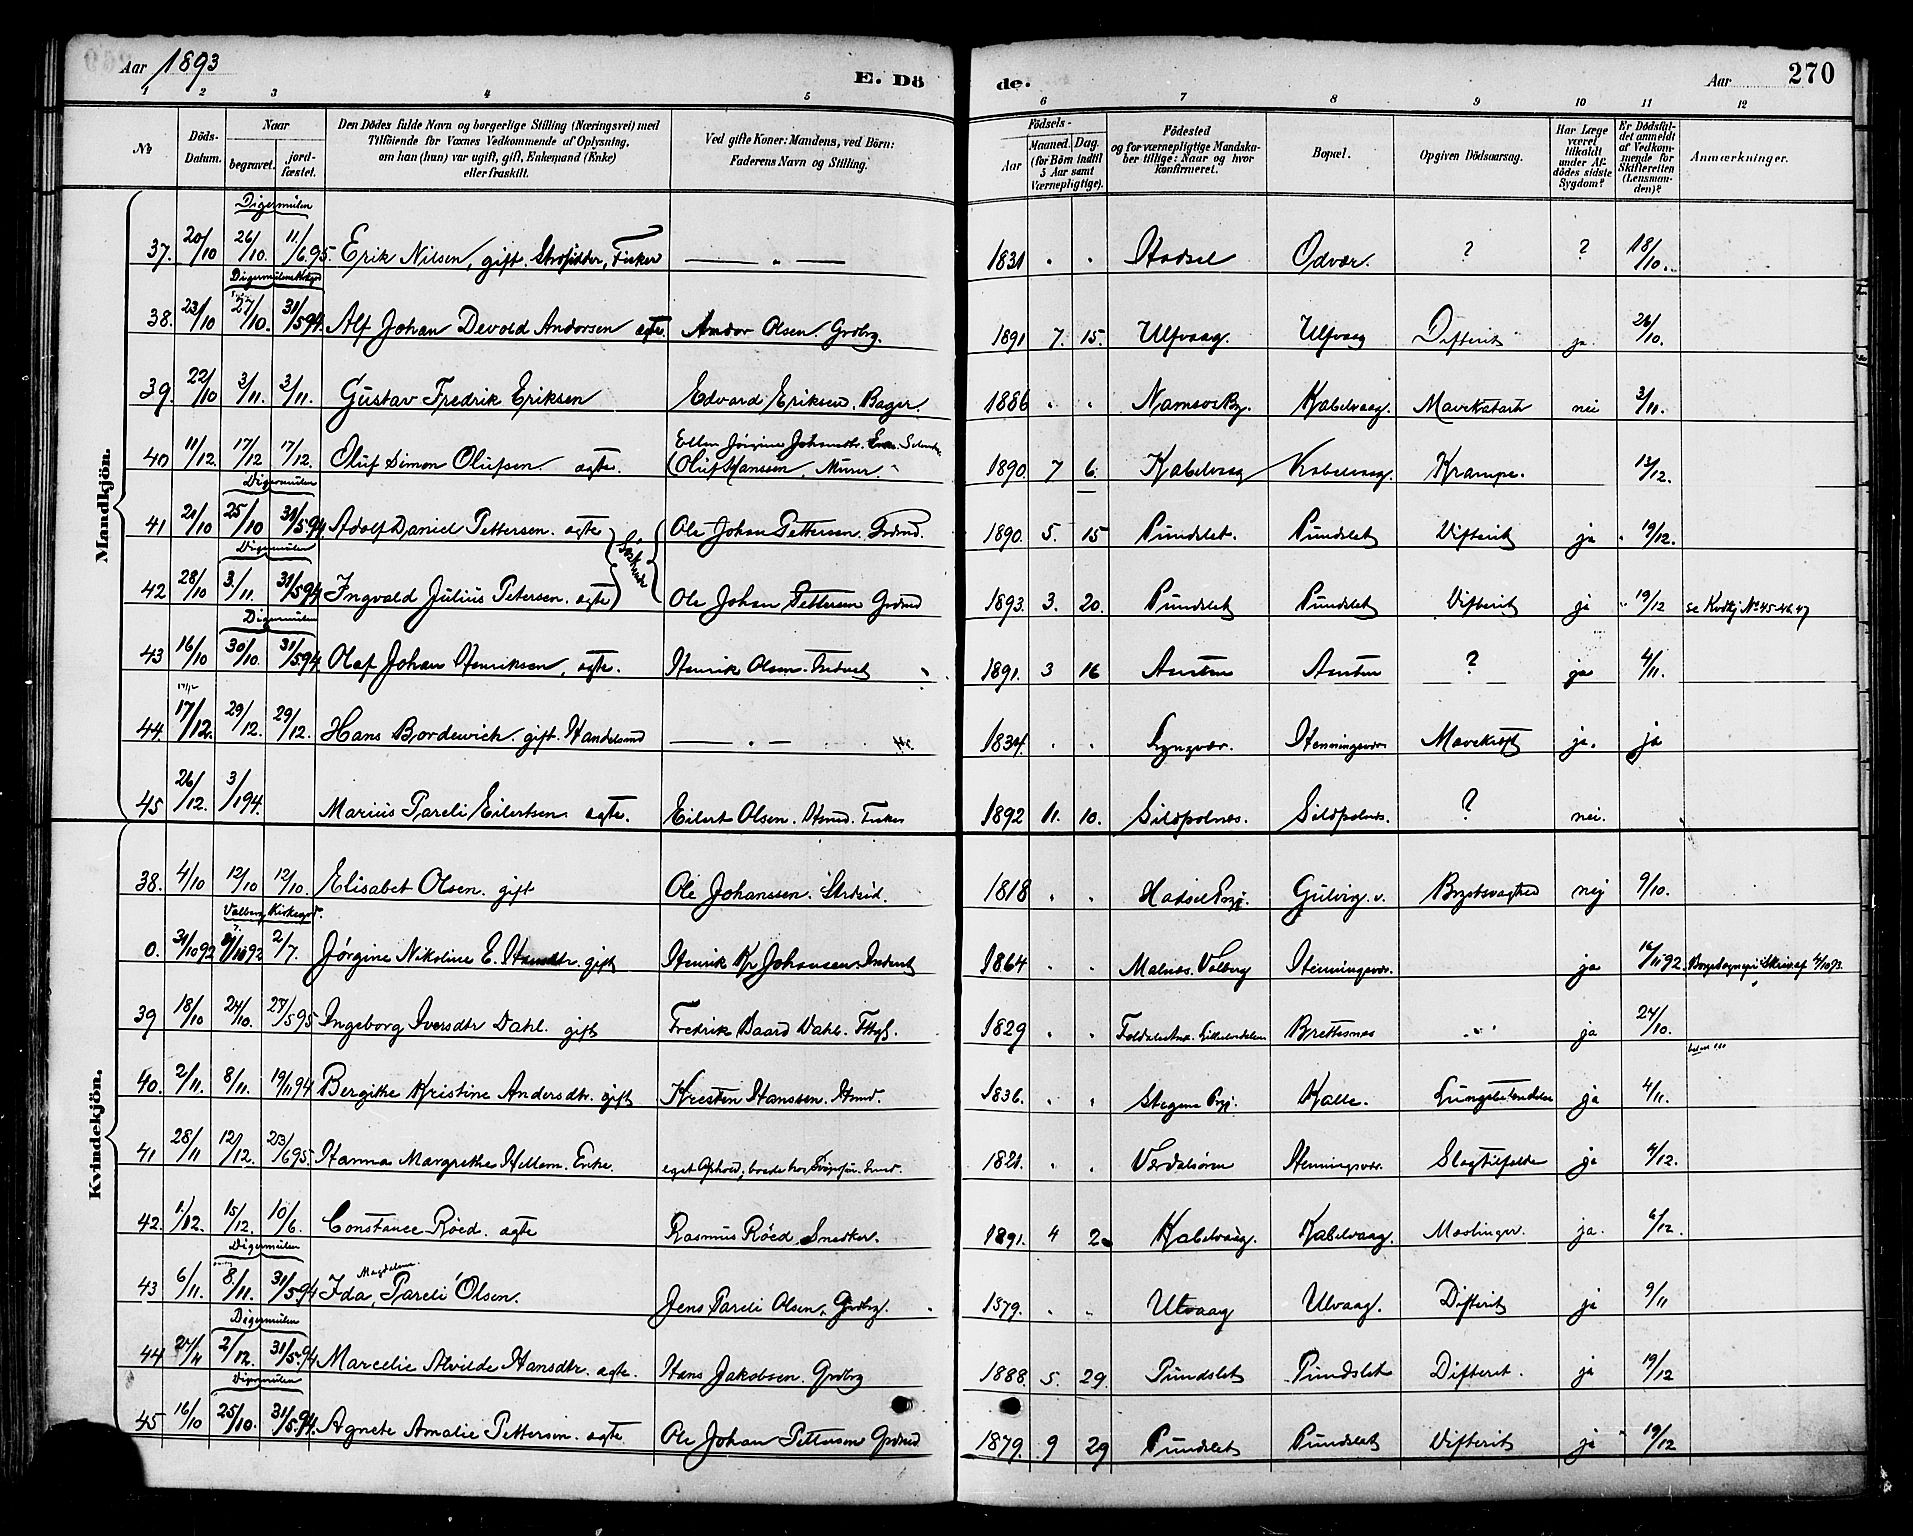 Aar 1893
E. Dö
de.
Aar
270
1 2 3 4 5 6 7 8 9 10 11 12
No
Döds-Datum.
Naar
begravet.
jord-fæstet.
Den Dödes fulde Navn og borgerlige Stilling (Næringsvei) med
Tilföiende for Voxnes Vedkommende af Oplysning,
om han (hun) var ugift, gift, Enkemand (Enke)
eller fraskilt.
Ved gifte Koner: Mandens, ved Börn:
Faderens Navn og Stilling.
Födsels-
Aar
Maaned. Dag.
(for Börn indtil
5 Aar samt
Værnepligtige).
Födested
og for værnepligtige Mandska-
ber tillige: Naar og hvor
konfirmeret.
Bopæl.
Opgiven Dödsaarsag.
Har Læge
været
tilkaldt
under Af-
dödes sidste
Sygdom?
Er Dödsfal-
det anmeldt
af Vedkom-
mende for
Skifteretten
(Lensman-
den)?
Anmærkninger.
Mandkjön.
Digermulen
37. 20/10 26/10. 11/6.95. Erik Nilsen, gift. Strøsidder, Fisker — „ — 1831 „ „ Hadsel Odvær. ? ? 18/10.
Digermulen Kirkegd
38. 23/10 27/10. 31/5.94. Alf Johan Devold Andorsen ægte. Andor Olsen. Grdbrg. 1891 7. 15. Ulfvaag. Ulfvaag Difterit ja 26/10.
39. 22/10 3/11. 3/11. Gustav Fredrik Eriksen Edvard Eriksen. Bager. 1886 „ „ Namsos By. Kabelvaag. Mavekatarh nei 3/11.
40 11/12. 17/12 17/12. Oluf Simon Olufsen ægte. Ellen Jørgine Johansdtr.
(Oluf Hanssen, Murer. 1890. 7 6. Kabelvaag Kabelvaag. Krampe. 13/12.
Digermulen
41 21/10 25/10 31/5.94 Adolf Daniel Pettersen. ægte Søskende Ole Johan Pettersen. Grdmd. 1890. 5. 15 Pundslet. Pundslet Difterit ja 19/12.
Digermulen
42 28/10 3./11. 31/5.94 Ingvald Julius Petersen. ægte Ole Johan Pettersen Grdmd 1893. 3. 20. Pundslet Pundslet Difterit ja 19/12 se Kvdkj No 45-46.47
Digermulen
43 16/10 30/10. 31/5.94. Olaf Johan Henriksen, ægte. Henrik Olsen. Indvst 1891. 3 16 Austen Austen ? ja 4/11.
44. 17/12. 29/12. 29/12. Hans Bordewich. gift. Handelsmd — „ — 1834. „ „ Lyngvær. Henningsvær. Mavekræft ja. ja
45 26/12. 3/1 94. Marius Pareli Eilertsen ægte. Eilert Olsen. Hsmd. Fisker 1892 11. 10. Sildpolnæs. Sildpolnæs. ? nei.
Kvindekjön.
38. 4/10 12/10 12/10. Elisabet Olsen. gift Ole Johanssen. Strdsid. 1818 „ „ Hadsel Prgj. Gulvig. v. Brystsvaghed nej 9/10.
Valberg Kirkegrd.
0. 31/10 92 9/10 92 2/7. Jørgine Nikoline E. Hansdtr. gift Henrik Kr Johansen. Inderst 1864 „ „ Malnæs. Valberg Henningsvær. ja 16/11 92. Borge Sognepr. Skriv. af 4/10 93.
39 18/10 24/10. 27/5 95 Ingeborg Iversdtr Dahl. gift Fredrik Baard Dahl. 1829 „ „ Brettesnæs „ ja 24/10.
40. 2/11. 8/11. 19/11 94 Bergitte Kristine Andersdtr. gift Kresten Hanssen. Hsmd. 1836. „ „ Stegens Prgj. Kalle. Lungebetændelse ja 4/11.
41 28/11 12/12. 23/6 95. Hanna Margrethe Hellem. Enke. eget Ophold, boede hos 1821. „ „ Værdalsøren Henningsvær. Slagtilfælde ja 4/12.
42. 1./12. 15/12. 10/6. Constance Röed. ægte Rasmus Röed Snedker. 1891. 4 2 Kabelvaag. Kabelvaag. Mæslinger. ja. 6/12.
Digermulen
43 6/11. 8./11. 31/5.94 Ida, Magdelene. Pareli Olsen. Jens Pareli Olsen, Grdbrg. 1879. „ „ Ulvaag Ulvaag. Difterit ja 9/11
Digermulen
44 27/11 2/12. 31/5.94 Marcelie Alvilde Hansdtr. ægte. Hans Jakobsen. Grdbrg 1888. 5. 29. Pundslet Pundslet Difterit. ja 19/12
Digermulen
45 16/10 25/10. 31/5.94. Agnete Amalie Pettersen. ægte. Ole Johan Pettersen Grdmd 1879. 9 29 Pundslet Pundslet Difterit ja 19/12